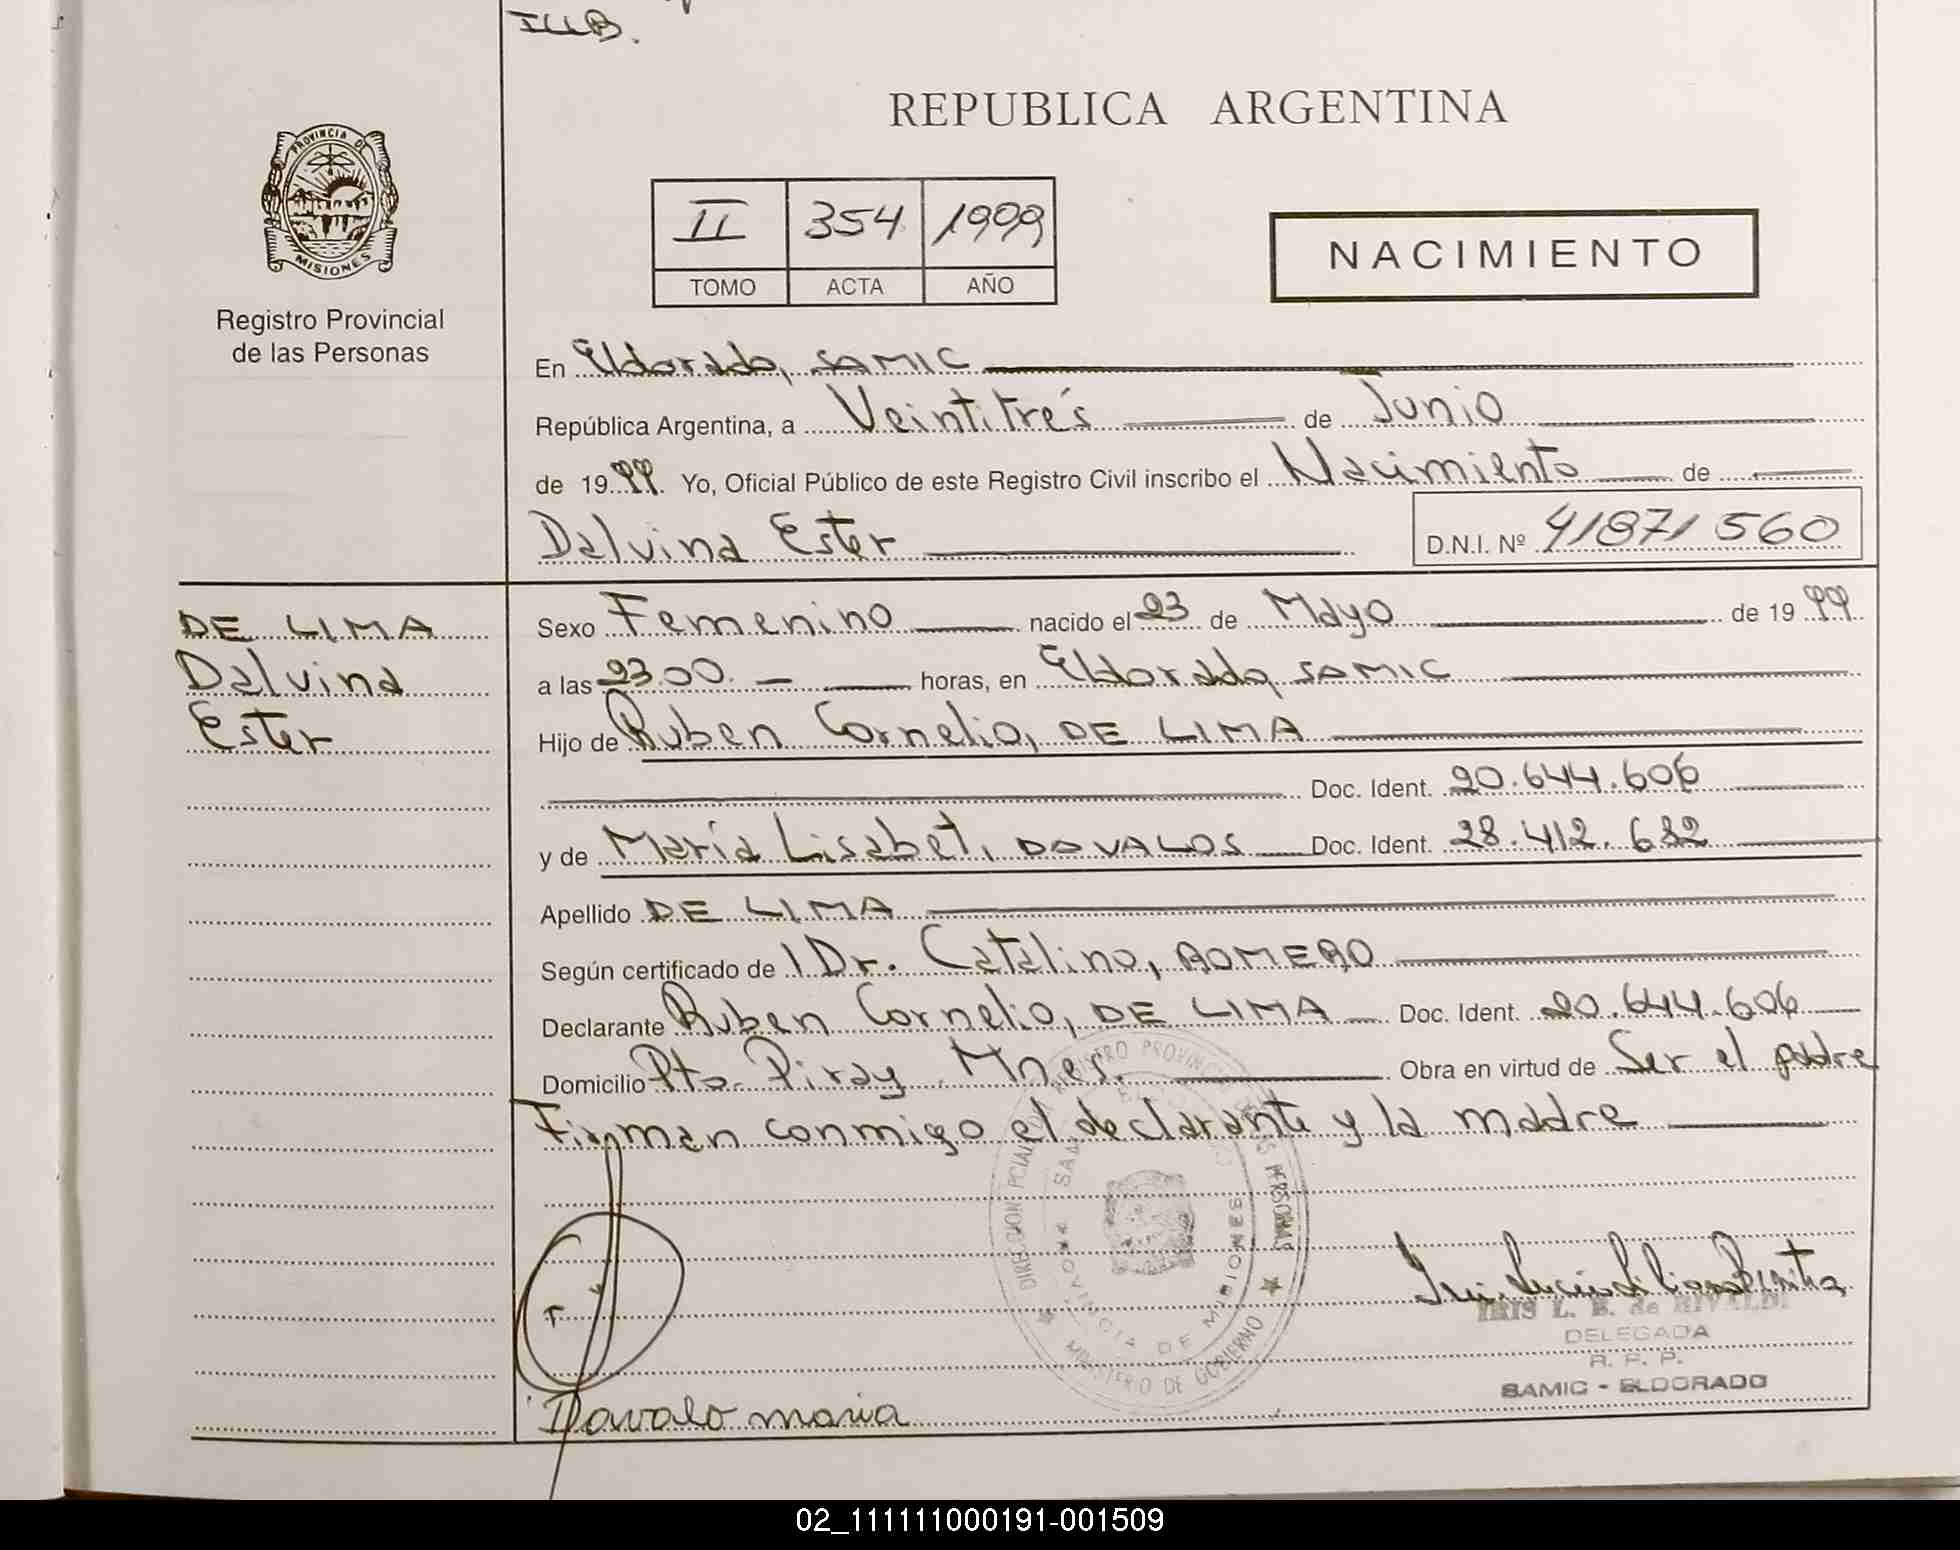 ILLB.
PROVINCIA DE
MISIONES
Registro Provincial
de las Personas
REPUBLICA ARGENTINA
II 354 1999
TOMO ACTA AÑO
NACIMIENTO
En Eldorado, SAMIC
República Argentina, a Veintitrés de Junio
de 1999. Yo, Oficial Público de este Registro Civil inscribo el Nacimiento de
Dalvina Ester D.N.I. Nº 41871560
DE LIMA
Dalvina
Ester
Sexo Femenino nacido el 23 de Mayo de 1999
a las 23.00. horas, en Eldorado, SAMIC
Hijo de Ruben Cornelio, DE LIMA
Doc. Ident. 20.644.606
y de María Lisabet, DAVALOS Doc. Ident. 28.412.682
Apellido DE LIMA
Según certificado de l Dr. Catalino, ROMERO
Declarante Ruben Cornelio, DE LIMA Doc. Ident. 20.644.606
Domicilio Pto. Piray Mnes. Obra en virtud de Ser el padre
Firman conmigo el declarante y la madre
DIRECCION PCIAL. REGISTRO PROVINCIAL DE LAS PERSONAS
MINISTERIO DE GOBIERNO
PROVINCIA DE MISIONES
IRIS L. B. de RIVALDI
DELEGADA
R. P. P.
SAMIC - ELDORADO
Davalo maria
02_111111000191-001509